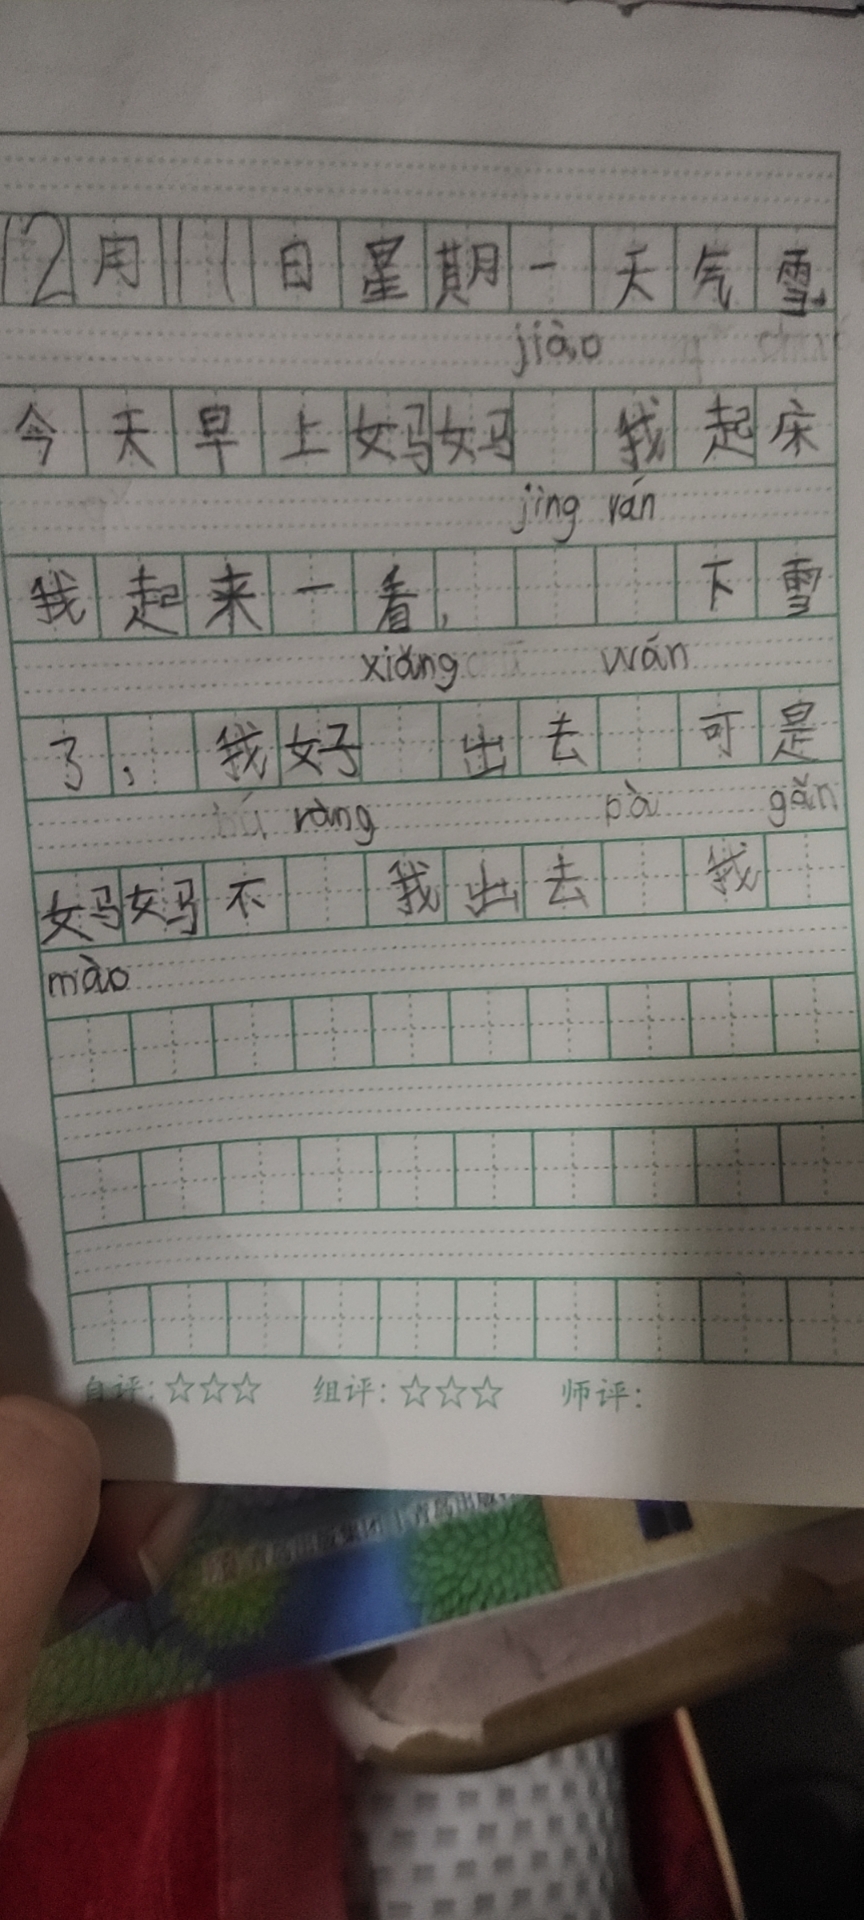 12月11日星期一天气雪
jiào
今天早上妈妈 我起床
jìng rán
我起来一看, 下雪
xiǎng wán
了, 我好 出去 可是
ràng pà gǎn
妈妈不 我出去 我
mào
自评:☆☆☆ 组评:☆☆☆ 师评: